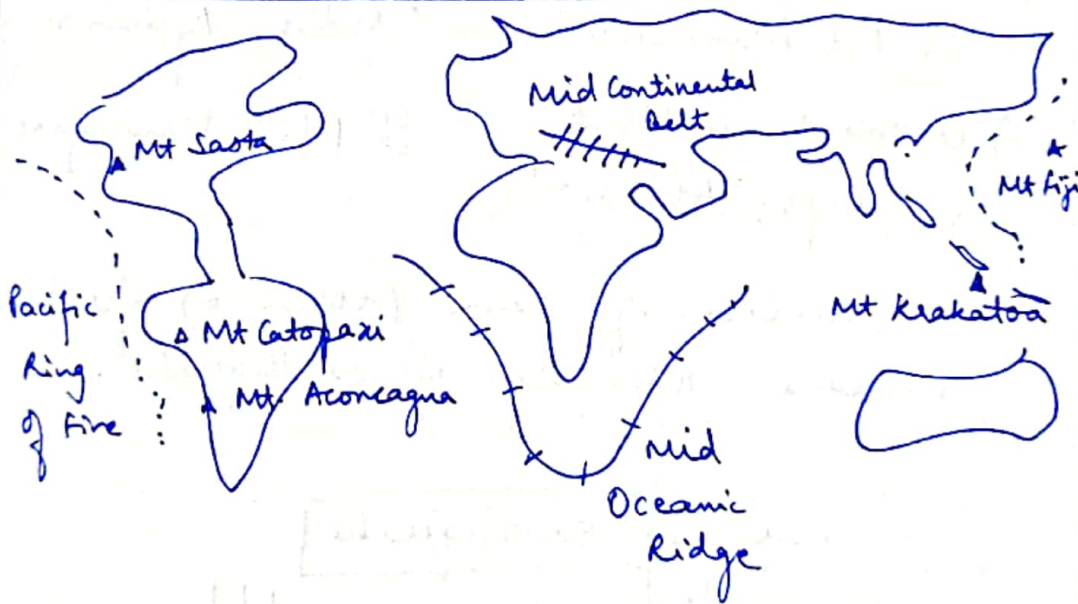 Mid Continental
Belt
Mt Sasta
Mt Fiji
Pacific
Ring
of Fire
Mt Catopaxi
Mt. Aconcagua
Mt Krakatoa
Mid
Oceanic
Ridge